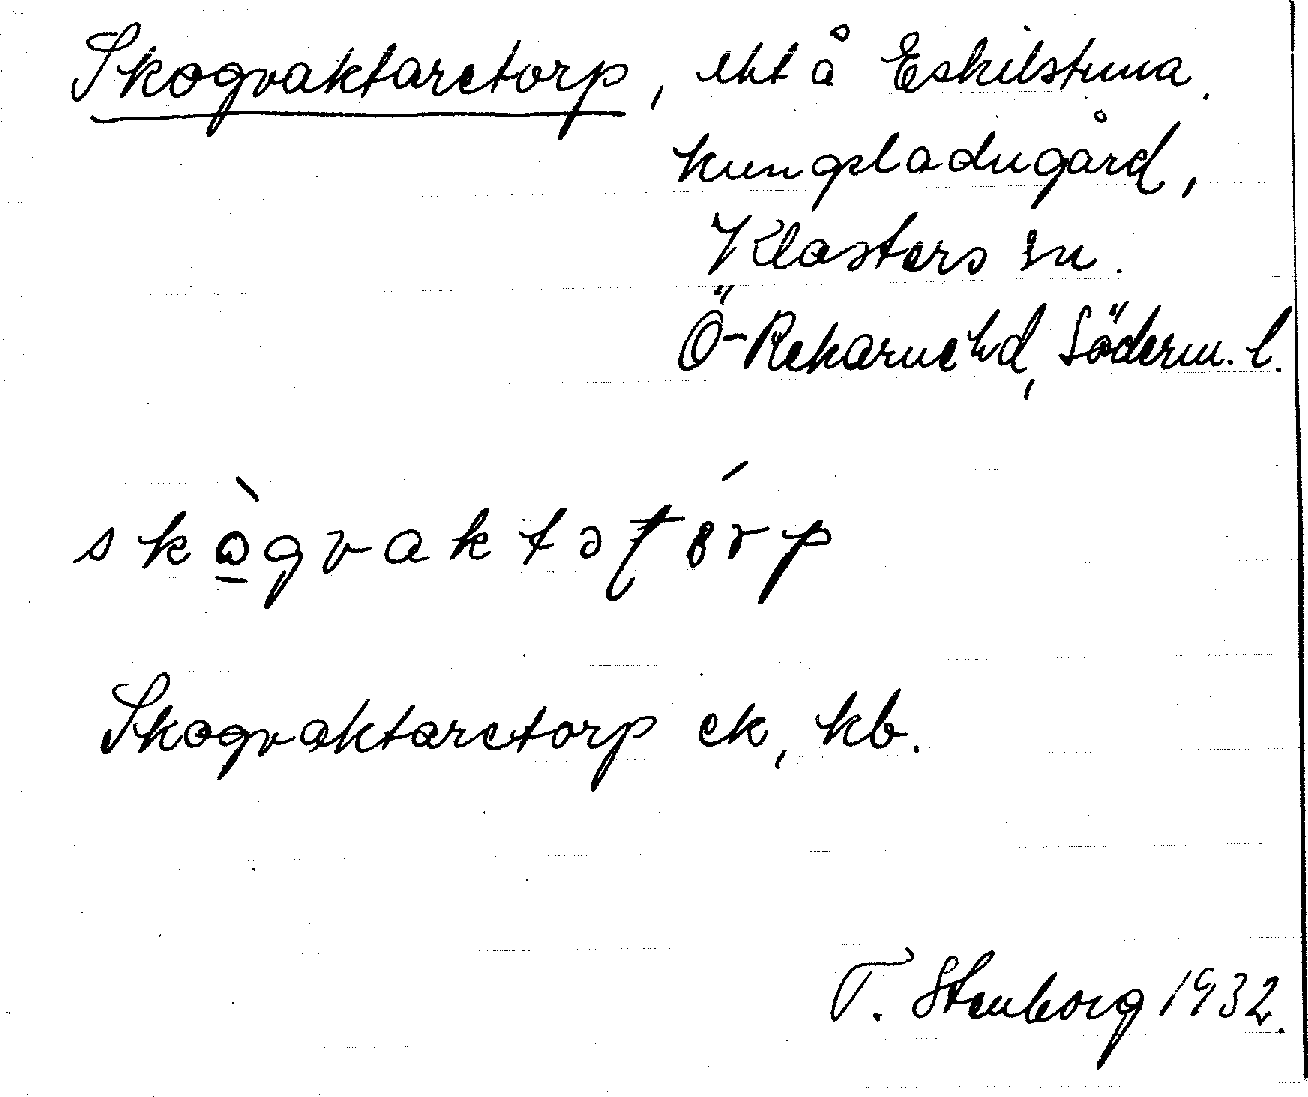 Skogvaktaretorp, lht å Eskilstuna
kungsladugård,
Klosters sn.
Ö-Rekarne hd, Söderm. l.
skògvaktəʈórp
Skogvaktaretorp ek, kb.
T. Stenborg 1932.